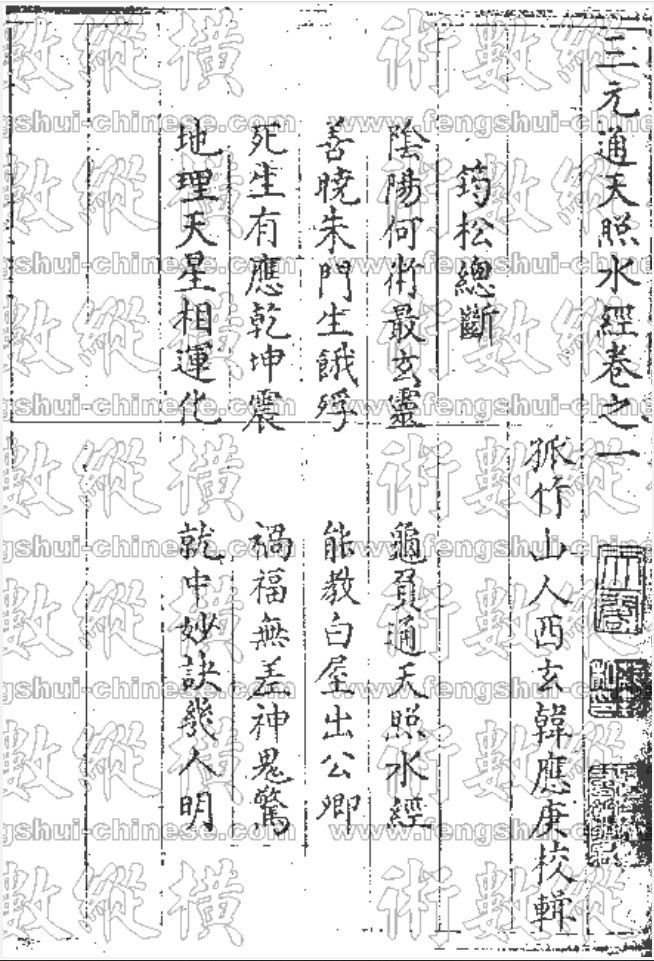 三元通天照水經卷之一
狐竹山人西玄韓應庚校輯
筠松總斷
陰陽何術最玄靈 龜負通天照水經
善曉朱門生餓殍 能教白屋出公卿
死生有應乾坤震 禍福無差神鬼驚
地理天星相運化 就中妙訣幾人明
術數縱橫
www.fengshui-chinese.com